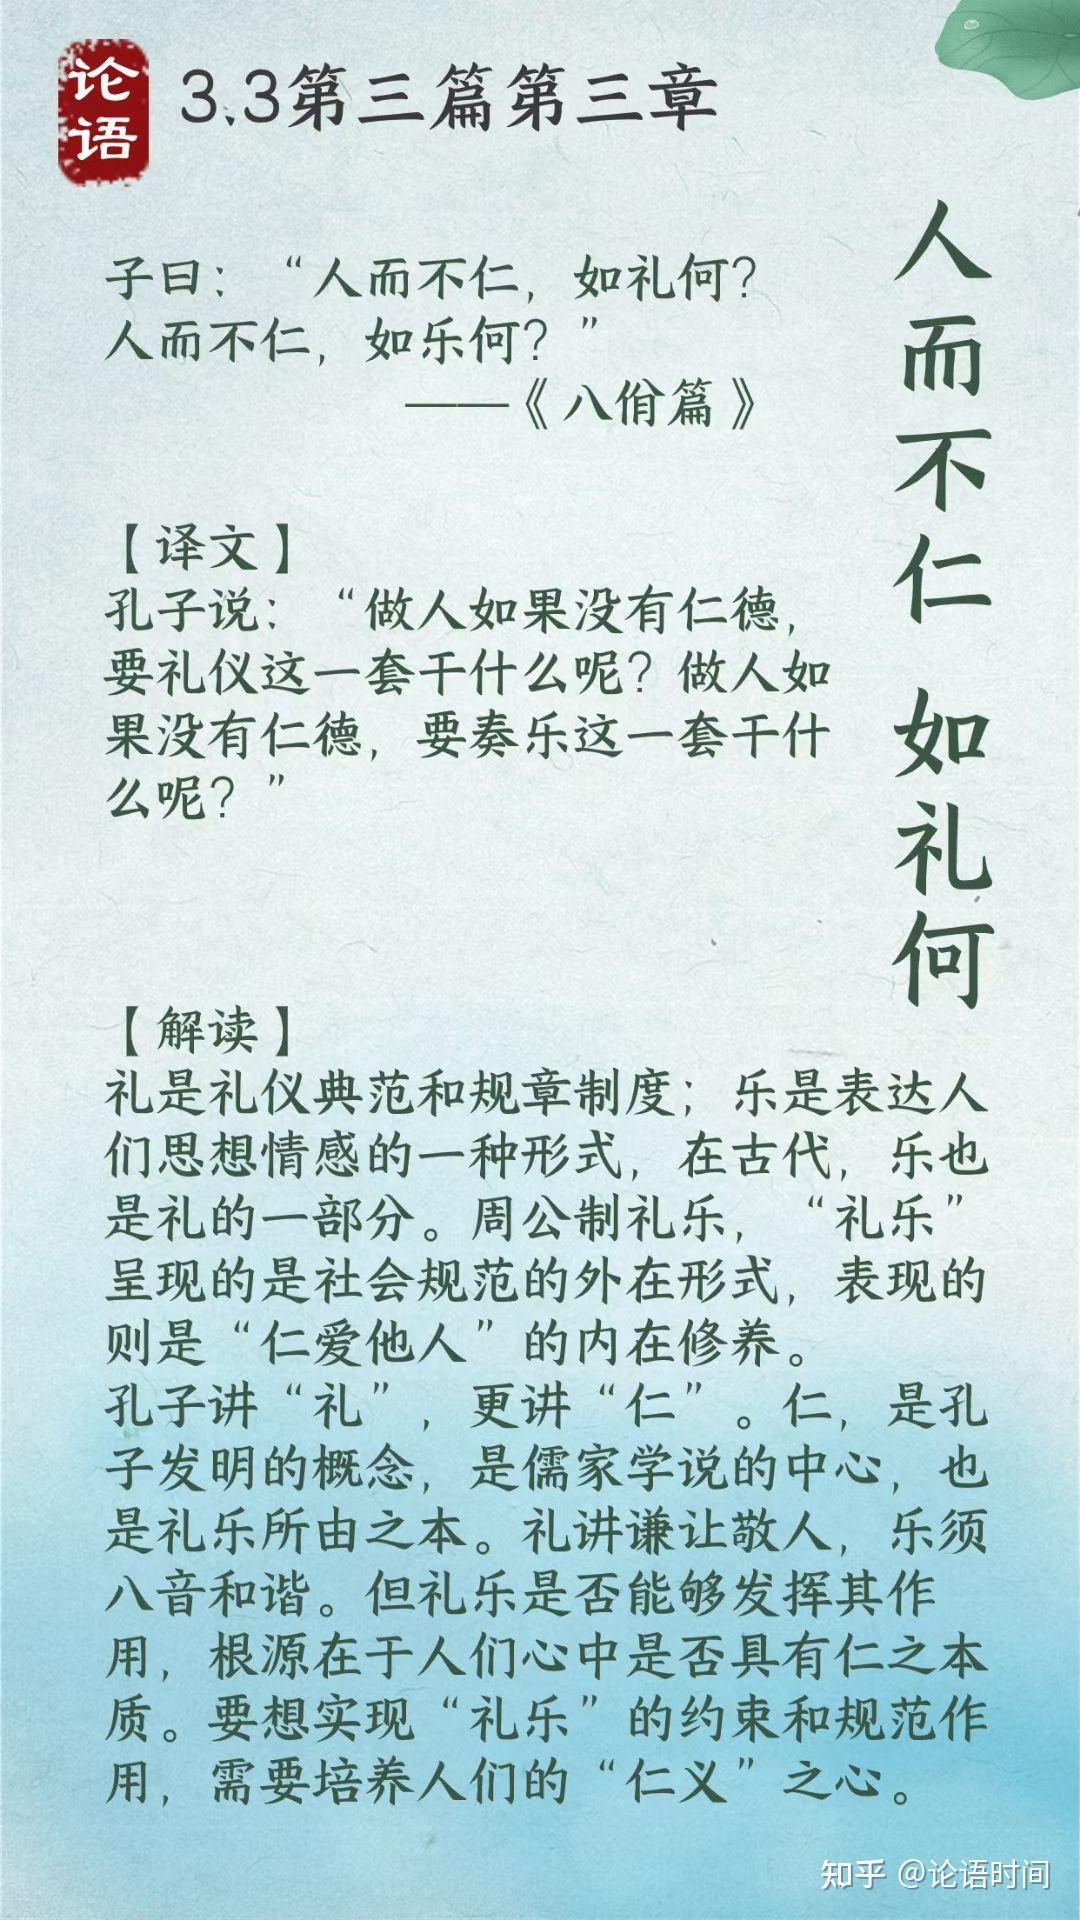 论语
3.3第三篇第三章
人而不仁 如礼何
子曰：“人而不仁，如礼何？
人而不仁，如乐何？”
——《八佾篇》
【译文】
孔子说：“做人如果没有仁德，
要礼仪这一套干什么呢？做人如
果没有仁德，要奏乐这一套干什
么呢？”
【解读】
礼是礼仪典范和规章制度；乐是表达人
们思想情感的一种形式，在古代，乐也
是礼的一部分。周公制礼乐，“礼乐”
呈现的是社会规范的外在形式，表现的
则是“仁爱他人”的内在修养。
孔子讲“礼”，更讲“仁”。仁，是孔
子发明的概念，是儒家学说的中心，也
是礼乐所由之本。礼讲谦让敬人，乐须
八音和谐。但礼乐是否能够发挥其作
用，根源在于人们心中是否具有仁之本
质。要想实现“礼乐”的约束和规范作
用，需要培养人们的“仁义”之心。
知乎 @论语时间